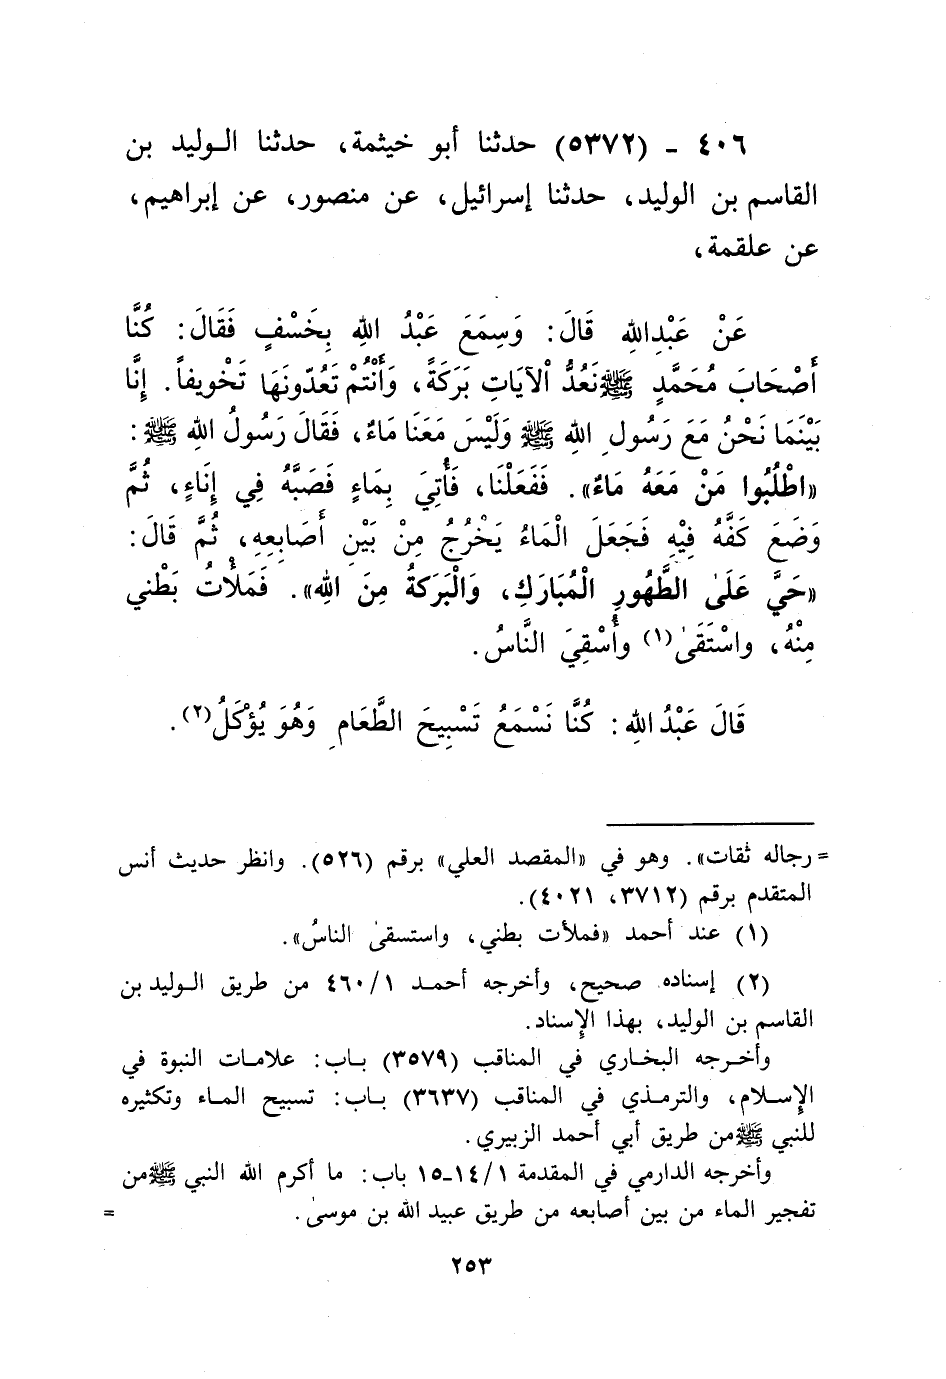 ٤٠٦ - (٥٣٧٢) حدثنا أبو خيثمة، حدثنا الـوليد بن
القاسم بن الوليد، حدثنا إسرائيل، عن منصور، عن إبراهيم،
عن علقمة،
عَنْ عَبْدِاللهِ قَالَ: وَسِمَعَ عَبْدُ اللهِ بِخَسْفٍ فَقَالَ: كُنَّا
أَصْحَابَ مُحَمَّدٍ ﷺ نَعُدُّ اْلآيَاتِ بَرَكَةً، وَأَنْتُمْ تَعُدّونَهَا تَخْويفاً. إِنَّا
بَيْنَمَا نَحْنُ مَعَ رَسُولِ اللهِ ﷺ وَلَيْسَ مَعَنَا مَاءٌ، فَقَالَ رَسُولُ اللهِ ﷺ:
«اطْلُبُوا مَنْ مَعَهُ مَاءٌ». فَفَعَلْنَا، فَأُتِيَ بِمَاءٍ فَصَبَّهُ فِي إِنَاءٍ، ثُمَّ
وَضَعَ كَفَّهُ فِيْهِ فَجَعَلَ الْمَاءُ يَخْرُجُ مِنْ بَيْنِ أَصَابِعِهِ، ثُمَّ قَالَ:
«حَيَّ عَلَىٰ الطَّهُورِ الْمُبَارَكِ، وَالْبَرَكةُ مِنَ اللهِ». فَمَلأْتُ بَطْني
مِنْهُ، واسْتَقَىٰ(١) وأُسْقِيَ النَّاسُ.
قَالَ عَبْدُ اللهِ: كُنَّا نَسْمَعُ تَسْبِيحَ الطَّعَامِ وَهُوَ يُؤْكَلُ(٢).
= رجاله ثقات». وهو في «المقصد العلي» برقم (٥٢٦). وانظر حديث أنس
المتقدم برقم (٣٧١٢، ٤٠٢١).
(١) عند أحمد «فملأت بطني، واستسقىٰ الناسُ».
(٢) إسناده صحيح، وأخرجه أحمـد ١/٤٦٠ من طريق الـوليد بن
القاسم بن الوليد، بهذا الإسناد.
وأخـرجه البخاري في المناقب (٣٥٧٩) بـاب: علامـات النبوة في
الإسـلام، والترمـذي في المناقب (٣٦٣٧) بـاب: تسبيح المـاء وتكثيره
للنبي ﷺ من طريق أبي أحمد الزبيري.
وأخرجه الدارمي في المقدمة ١/١٤-١٥ باب: ما أكرم الله النبي ﷺ من
تفجير الماء من بين أصابعه من طريق عبيد الله بن موسىٰ. =
٢٥٣